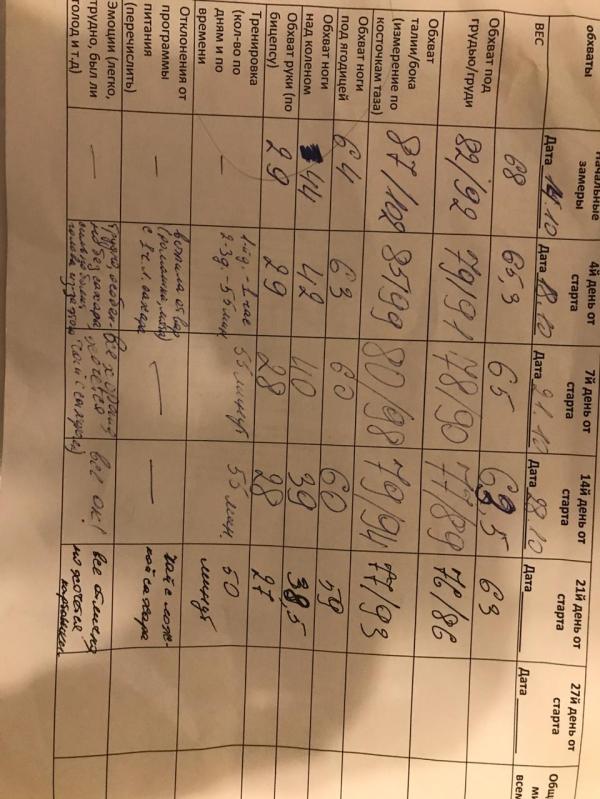 обхваты
Начальные замеры
Дата 14.10
4й день от старта
Дата 18.10
7й день от старта
Дата 21.10
14й день от старта
Дата 28.10
21й день от старта
Дата
27й день от старта
Дата
ВЕС
68
65,3
65
63,5
63
Обхват под
грудью/груди
82/92
79/91
78/90
77/89
76/86
Обхват
талии/бока
(измерение по
косточкам таза)
87/102
85/99
80/98
79/94
77/93
Обхват ноги
под ягодицей
64
63
60
60
59
Обхват ноги
над коленом
44
42
40
39
38,5
Обхват руки (по
бицепсу)
29
29
28
28
27
Тренировка
(кол-во по
дням и по
времени
—
1-2д. - 1 час
2-3д. - 55 мин
55 минут
55 мин.
50
минут
Отклонения от
программы
питания
(перечислить)
—
выпила отвар
с 1 ч.л. сахара
—
—
чай с лож-
кой сахара
Эмоции (легко,
трудно, был ли
голод и т.д)
—
трудно, особен-
но без сахара,
все хорошо
хочется
чай с сахаром
все ок!
все отлично
но хочется